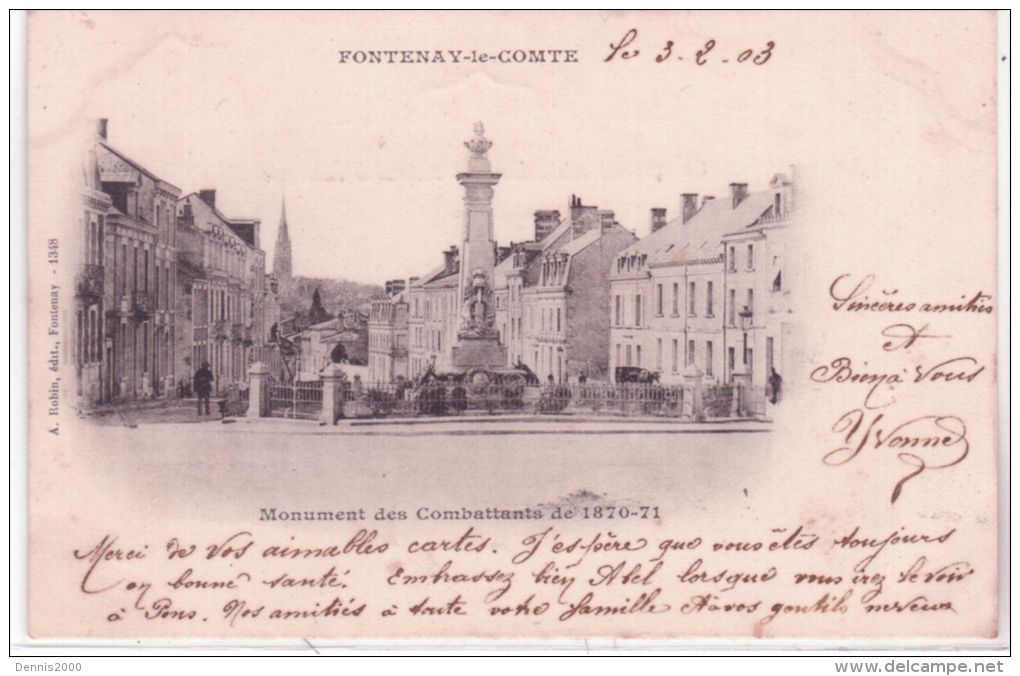 FONTENAY-le-COMTE
le 3.2.03
A. Robin, édit., Fontenay - 1348
Sincères amitiés
et
Bien à Vous
Yvonne
Monument des Combattants de 1870-71
Merci de Vos aimables cartes. J'espère que vous êtes toujours
en bonne santé. Embrassez bien Abel lorsque vous irez le voir
à Pons. Nos amitiés à toute votre famille et à vos gentils neveux
Dennis2000
http://www.delcampe.net